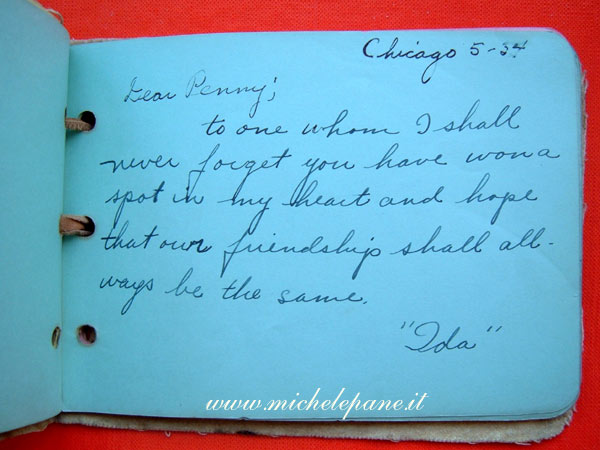 Chicago 5-34
Dear Penny;
to one whom I shall
never forget you have won a
spot in my heart and hope
that our friendship shall all-
ways be the same.
"Ida"
www.michelepane.it